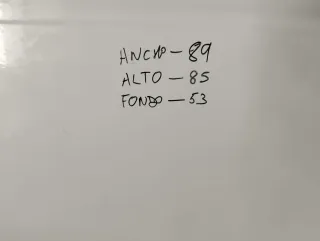 ANCHO - 89
ALTO - 85
FONDO - 53